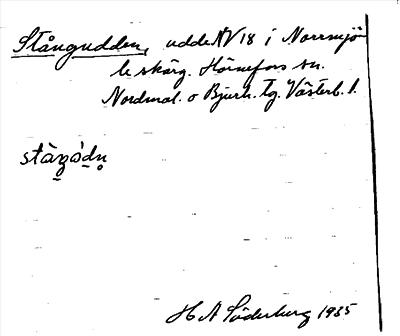 Stångudden, udde NV 18 i Norrmjö
le skärg. Hörnefors sn.
Nordmal. o Bjurh. tg. Västerb. l.
H A Söderberg 1935